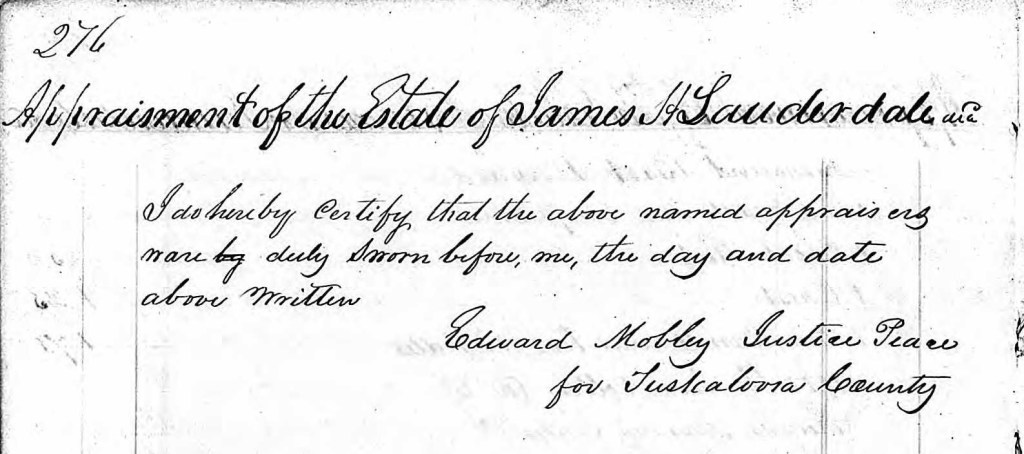 276
Appraisment of the Estate of James H Lauderdale
I do hereby Certify that the above named appraisers
ware by duly Sworn before, me, the day and date
above Written
Edward Mobley Justice Peace
for Tuskaloosa County